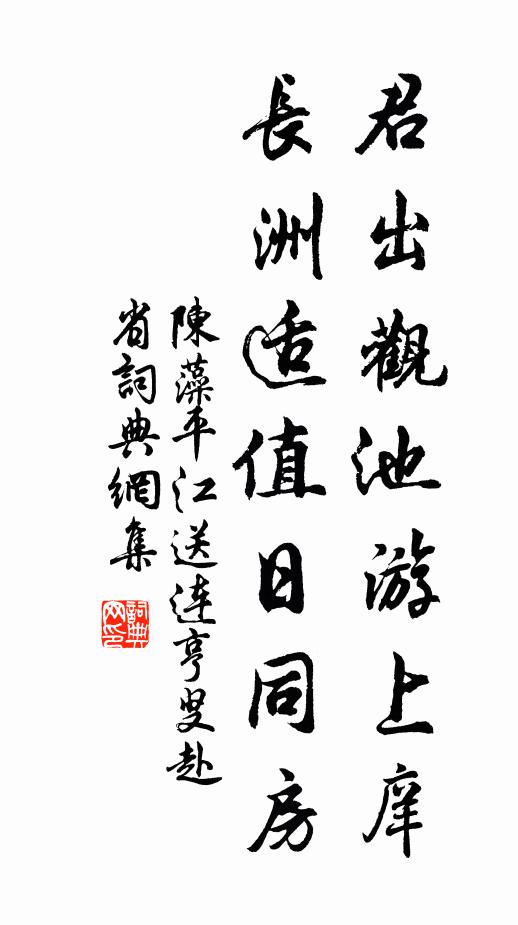 君出觀池游上庠
長洲适值日同房
陳藻平江送連亨叟赴
省詞典網集
詞典網印